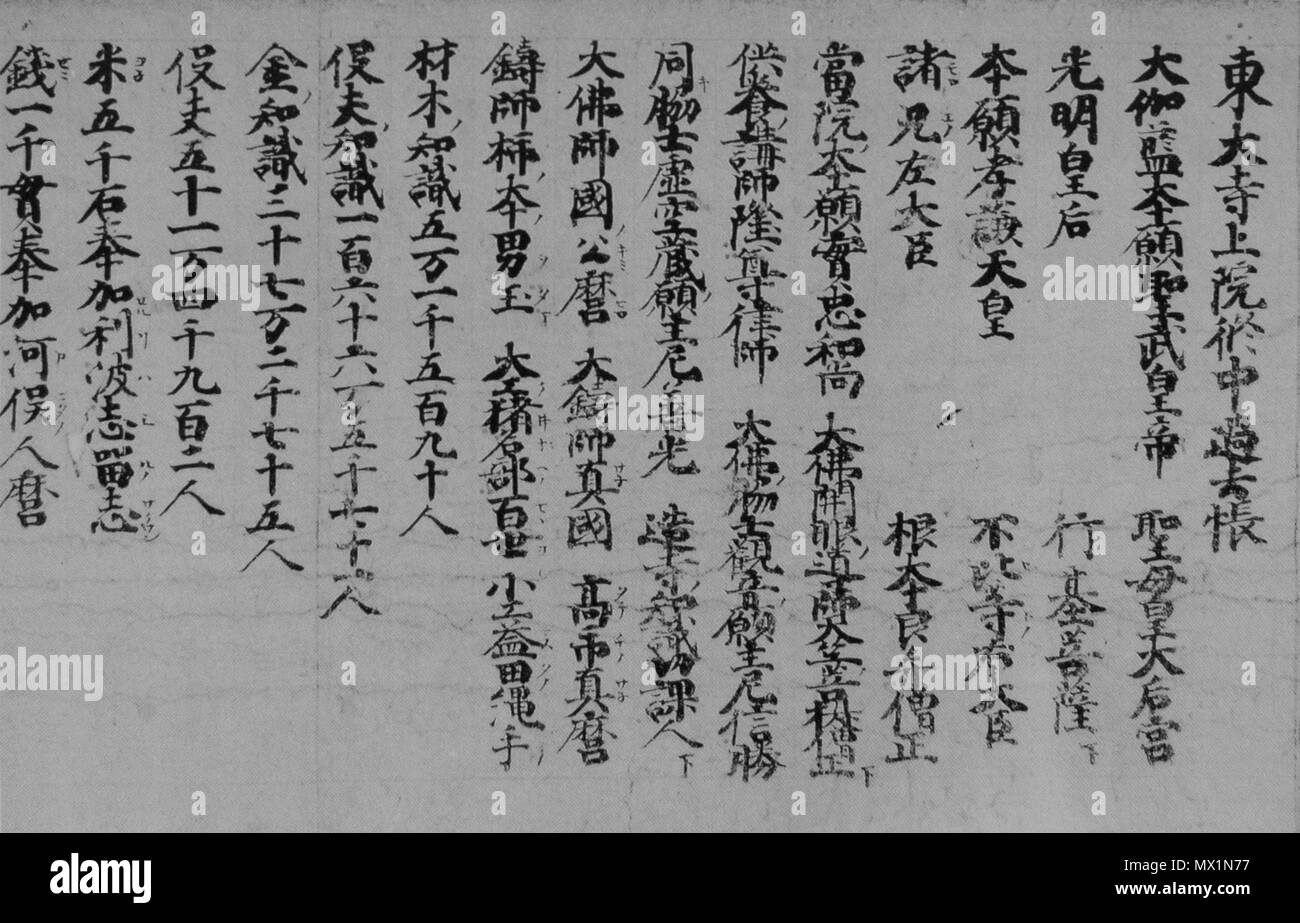 東大寺上院修中過去帳
大伽藍本願聖武皇帝 聖母皇大后宮
光明皇后 行基菩薩 下
本願孝謙天皇 不比等右大臣
諸兄左大臣 根本良弁僧正
當院本願實忠和尚 大佛開眼導師 僧正 下
供養講師隆尊律師 大佛脇士觀音願主尼信勝
同脇士虛空藏願主尼善光 造寺知識功課人 下
大佛師國公麿 大鑄師真國 髙市真麿
鑄師柿本男玉 大工猪名部百世 小工益田縄手
材木知識五万一千五百九十人
役夫知識一百六十六万五千七十一人
金知識三十七万二千七十五人
役夫五十一万四千九百二人
米五千石奉加利波志留志
錢一千貫奉加河俣人麿
alamy
Image ID: MX1N77
www.alamy.com